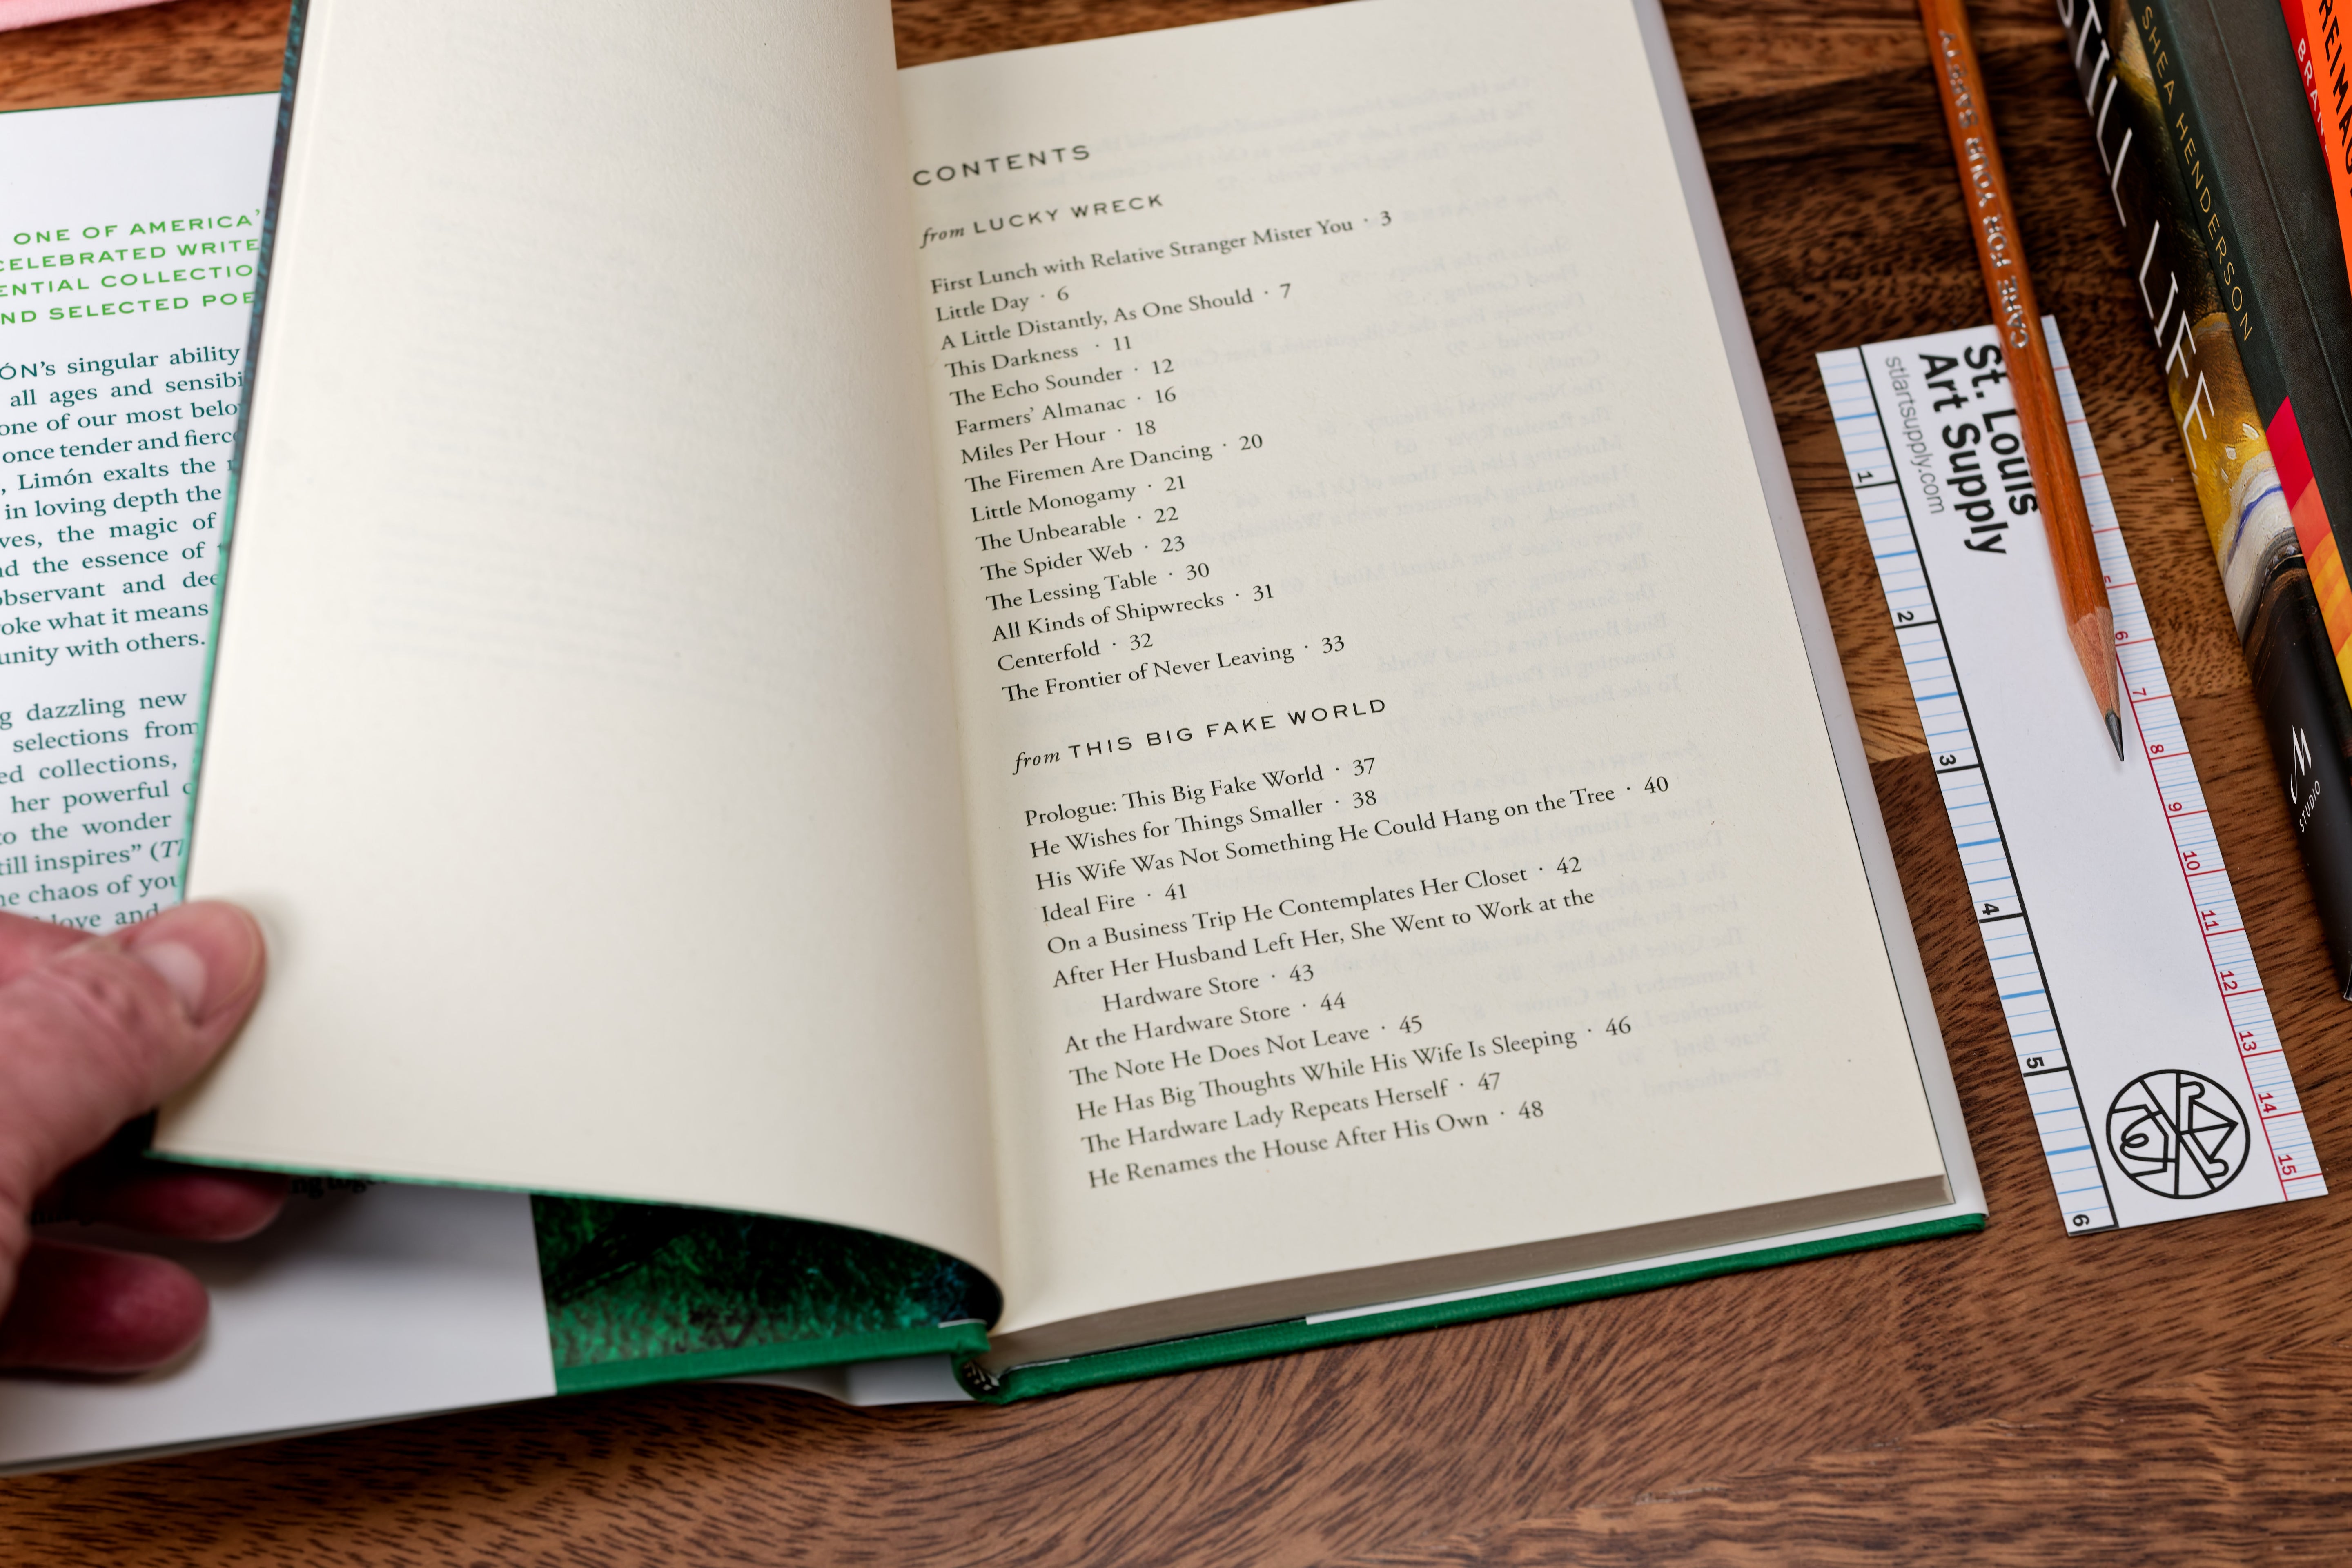 ONE OF AMERICA'
CELEBRATED WRITE
ENTIAL COLLECTIO
ND SELECTED POE
ÓN's singular ability
all ages and sensibi
one of our most belo
once tender and fierc
, Limón exalts the
in loving depth the
ves, the magic of
nd the essence of
observant and dee
oke what it means
unity with others.
g dazzling new
selections from
ed collections,
her powerful
to the wonder
till inspires” (T
he chaos of you
love and
CONTENTS
from LUCKY WRECK
First Lunch with Relative Stranger Mister You · 3
Little Day · 6
A Little Distantly, As One Should · 7
This Darkness · 11
The Echo Sounder · 12
Farmers’ Almanac · 16
Miles Per Hour · 18
The Firemen Are Dancing · 20
Little Monogamy · 21
The Unbearable · 22
The Spider Web · 23
The Lessing Table · 30
All Kinds of Shipwrecks · 31
Centerfold · 32
The Frontier of Never Leaving · 33
from THIS BIG FAKE WORLD
Prologue: This Big Fake World · 37
He Wishes for Things Smaller · 38
His Wife Was Not Something He Could Hang on the Tree · 40
Ideal Fire · 41
On a Business Trip He Contemplates Her Closet · 42
After Her Husband Left Her, She Went to Work at the
Hardware Store · 43
At the Hardware Store · 44
The Note He Does Not Leave · 45
He Has Big Thoughts While His Wife Is Sleeping · 46
The Hardware Lady Repeats Herself · 47
He Renames the House After His Own · 48
CARE FOR YOUR
St. Louis
Art Supply
stlartsupply.com
1
2
3
4
5
6
5
6
7
8
9
10
11
12
13
14
15
STILL LIFE
SHEA HENDERSON
STUDIO
REIMA
BRAIN